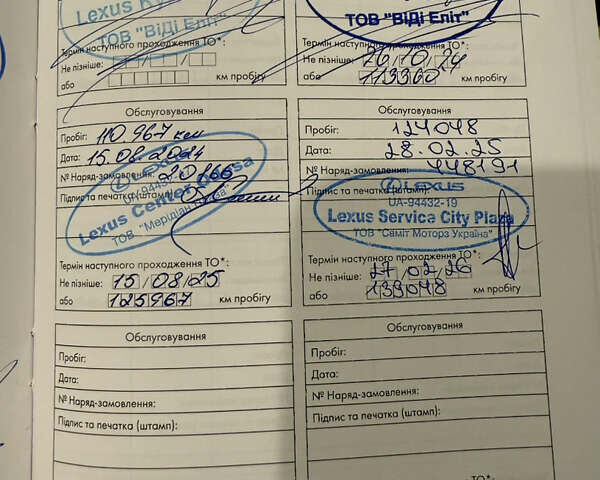 Lexus
ТОВ "ВІДІ Еліт"
Термін наступного проходження ТО*:
Не пізніше:
або
км пробігу
ТОВ "ВІДІ Еліт"
Термін наступного проходження ТО*:
Не пізніше: 26/10/24
або 113360 км пробігу
Обслуговування
Пробіг: 110.967 км
Дата: 15.08.2024
№ Наряд-замовлення: 20766
Підпис та печатка (штамп):
Lexus Center
ТОВ "Мерідіан
Термін наступного проходження ТО*:
Не пізніше: 15/08/25
або 125967 км пробігу
Обслуговування
Пробіг: 124048
Дата: 28.02.25
№ Наряд-замовлення: 448191
Підпис та печатка (штамп):
LEXUS
UA-94432-19
Lexus Service City Plaza
ТОВ "Саміт Моторз Україна"
Термін наступного проходження ТО*:
Не пізніше: 27/02/26
або 139048 км пробігу
Обслуговування
Пробіг:
Дата:
№ Наряд-замовлення:
Підпис та печатка (штамп):
Обслуговування
Пробіг:
Дата:
№ Наряд-замовлення:
Підпис та печатка (штамп):